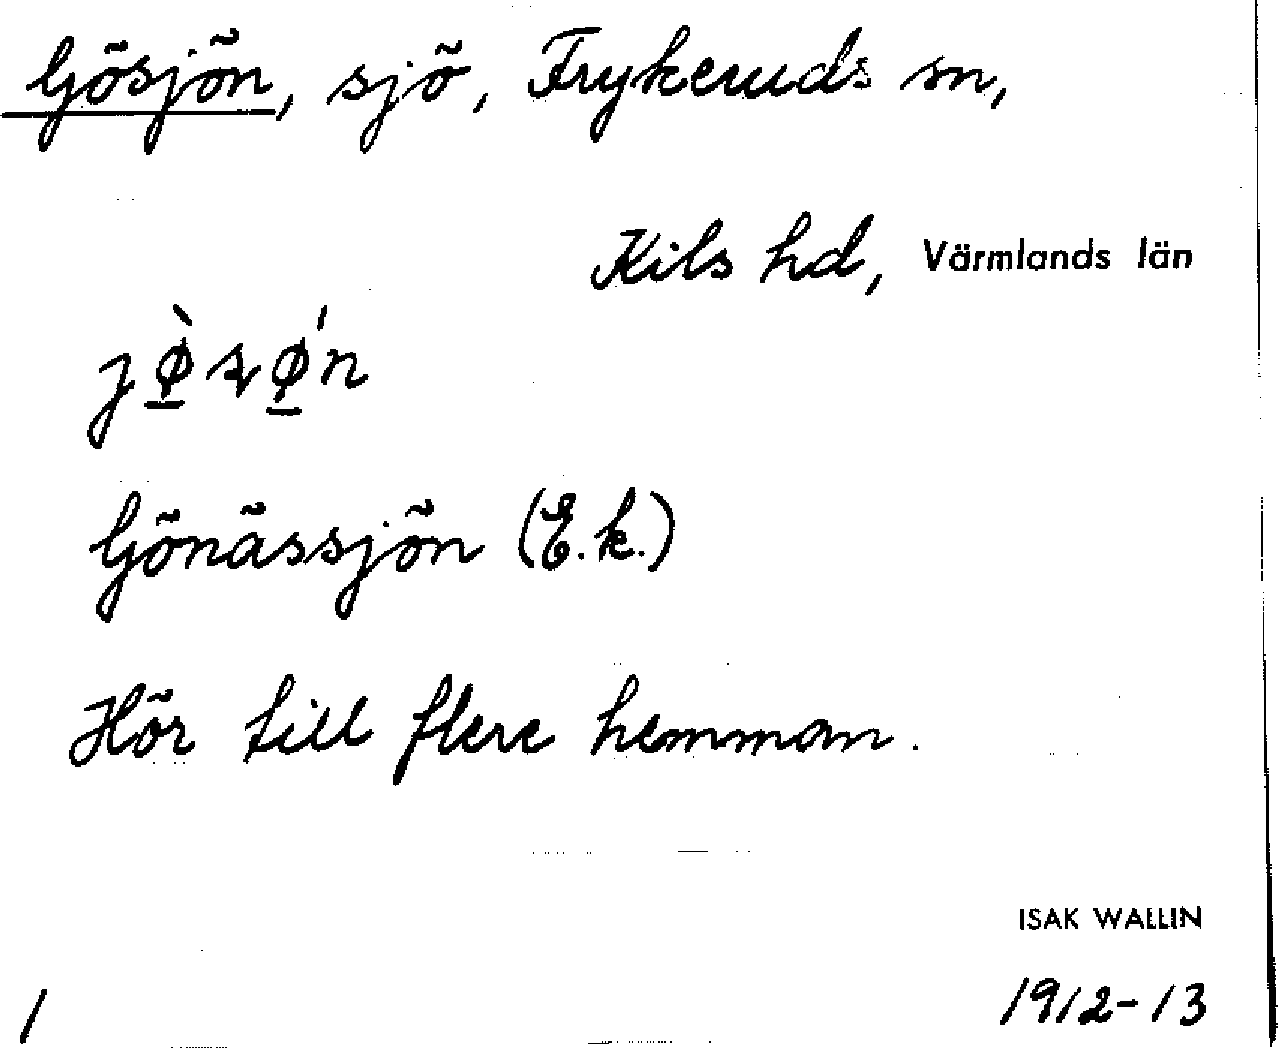 Gösjön, sjö, Frykeruds sn,
Kils hd, Värmlands län
jø̀sø´n
Gönässjön (E.k.)
Hör till flere hemman.
ISAK WALLIN
1 1912-13